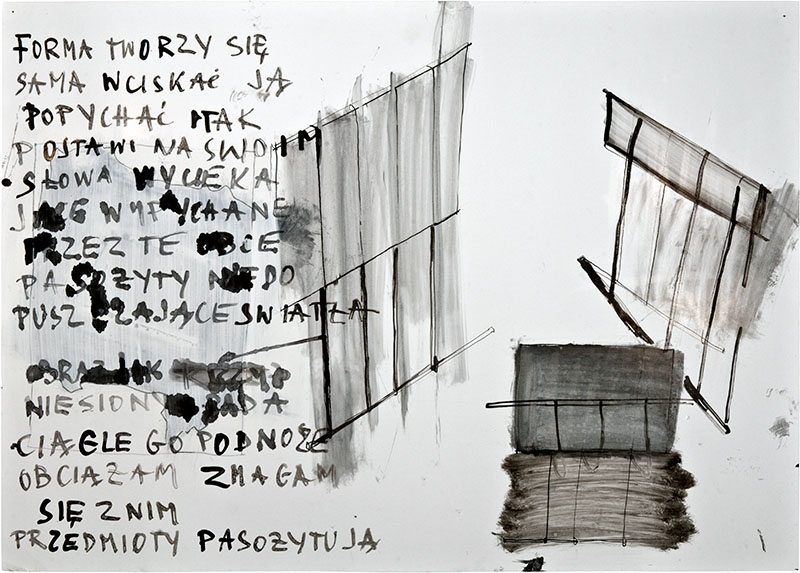 FORMA TWORZY SIĘ
SAMA WCISKAĆ JĄ
POPYCHAĆ I TAK
POSTAWI NA SWOIM
SŁOWA WYCIEKA
JĄCE WYPYCHANE
PRZEZ TE OBCE
PASOZYTY NIEDO
PUSZCZAJĄCE ŚWIATŁA
OBRAZ JAK KRZYŻ
NIESIONY PADA
CIĄGLE GO PODNOŻĘ
OBCIĄZAM ZMAGAM
SIĘ Z NIM
PRZEDMIOTY PASOZYTUJĄ